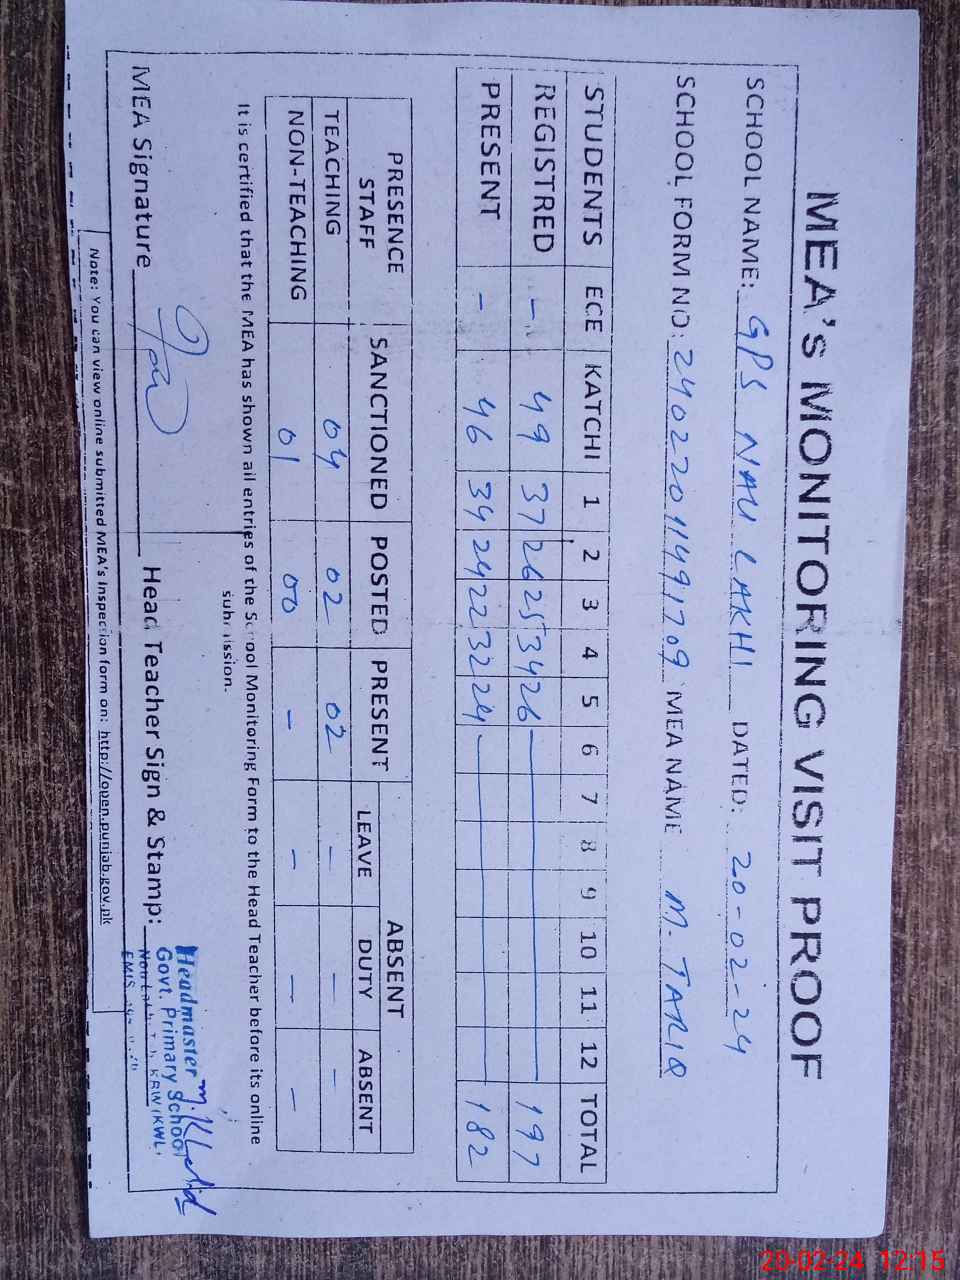 MEA's MONITORING VISIT PROOF
SCHOOL NAME: GPS NAU LAKHI DATED: 20-02-24
SCHOOL FORM NO: MEA NAME M. TARIQ
STUDENTS ECE KATCHI 1 2 3 4 5 6 7 8 9 10 11 12 TOTAL
REGISTRED - 49 37 26 25 34 26 197
PRESENT - 46 34 24 22 32 24 182
PRESENCE STAFF SANCTIONED POSTED PRESENT ABSENT
LEAVE DUTY ABSENT
TEACHING 04 02 02 - - -
NON-TEACHING 01 00 - - - -
It is certified that the MEA has shown all entries of the School Monitoring Form to the Head Teacher before its online
submission.
MEA Signature Head Teacher Sign & Stamp:
Headmaster
Govt. Primary School
EMIS
Note: You can view online submitted MEA's Inspection form on: http://open.punjab.gov.pk
20-02-24 12:15